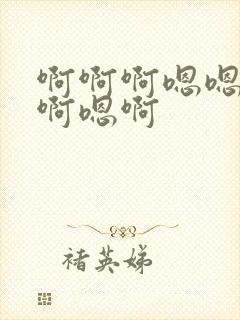 啊啊啊嗯嗯
啊嗯啊
褚英娣